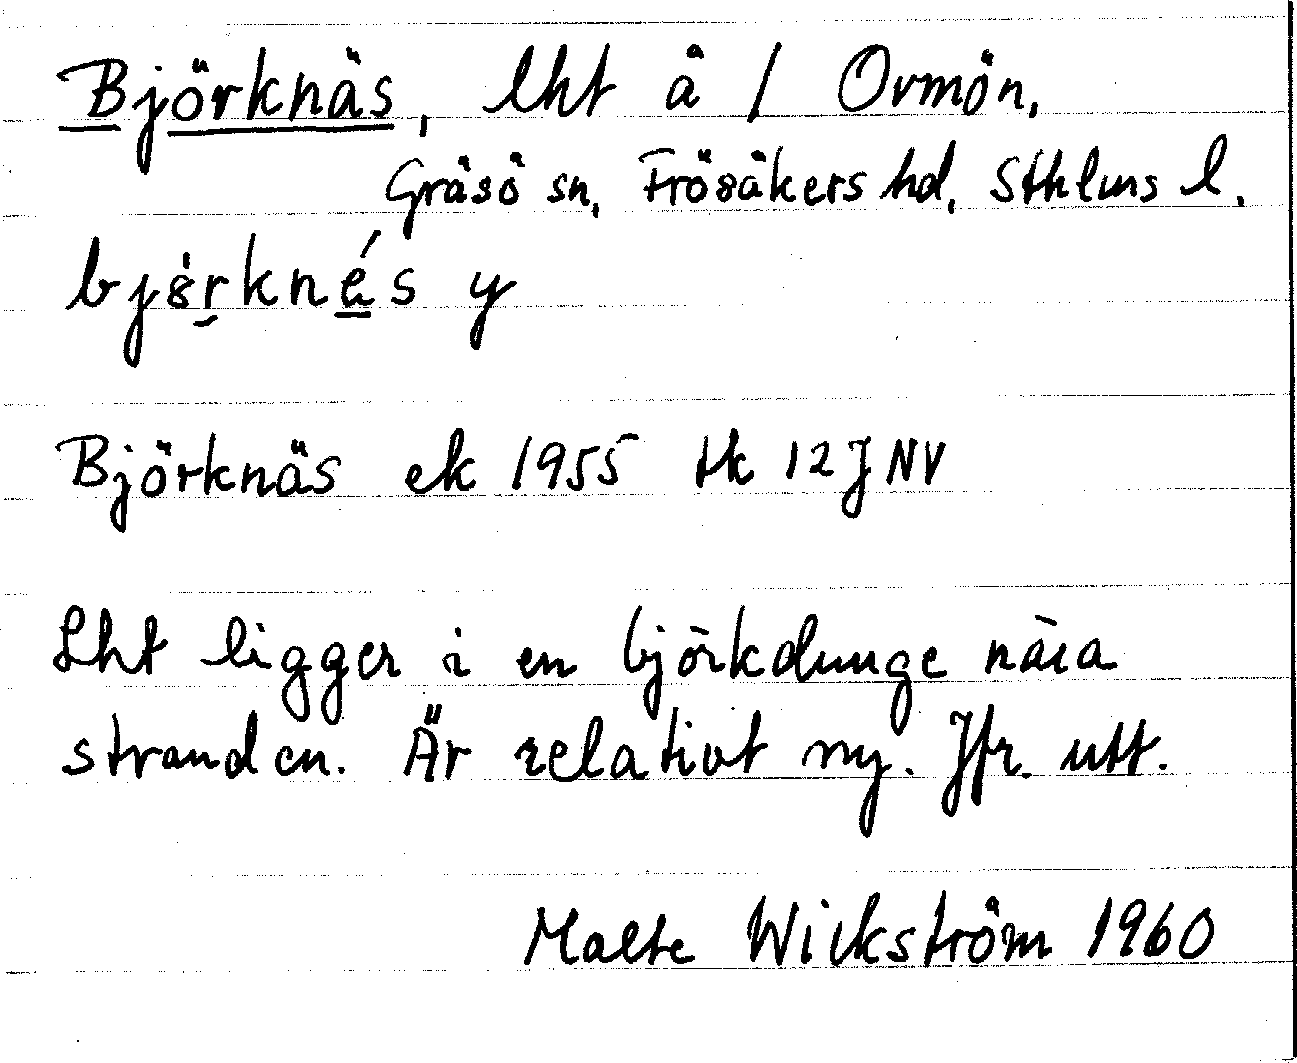 Björknäs, lht å / Ormön,
Gräsö sn, Frösåkers hd, Sthlms l.
y
Björknäs ek 1955 tk 12J NV
Lht ligger i en björkdunge nära
stranden. Är relativt ny. Jfr. utt.
Malte Wickström 1960